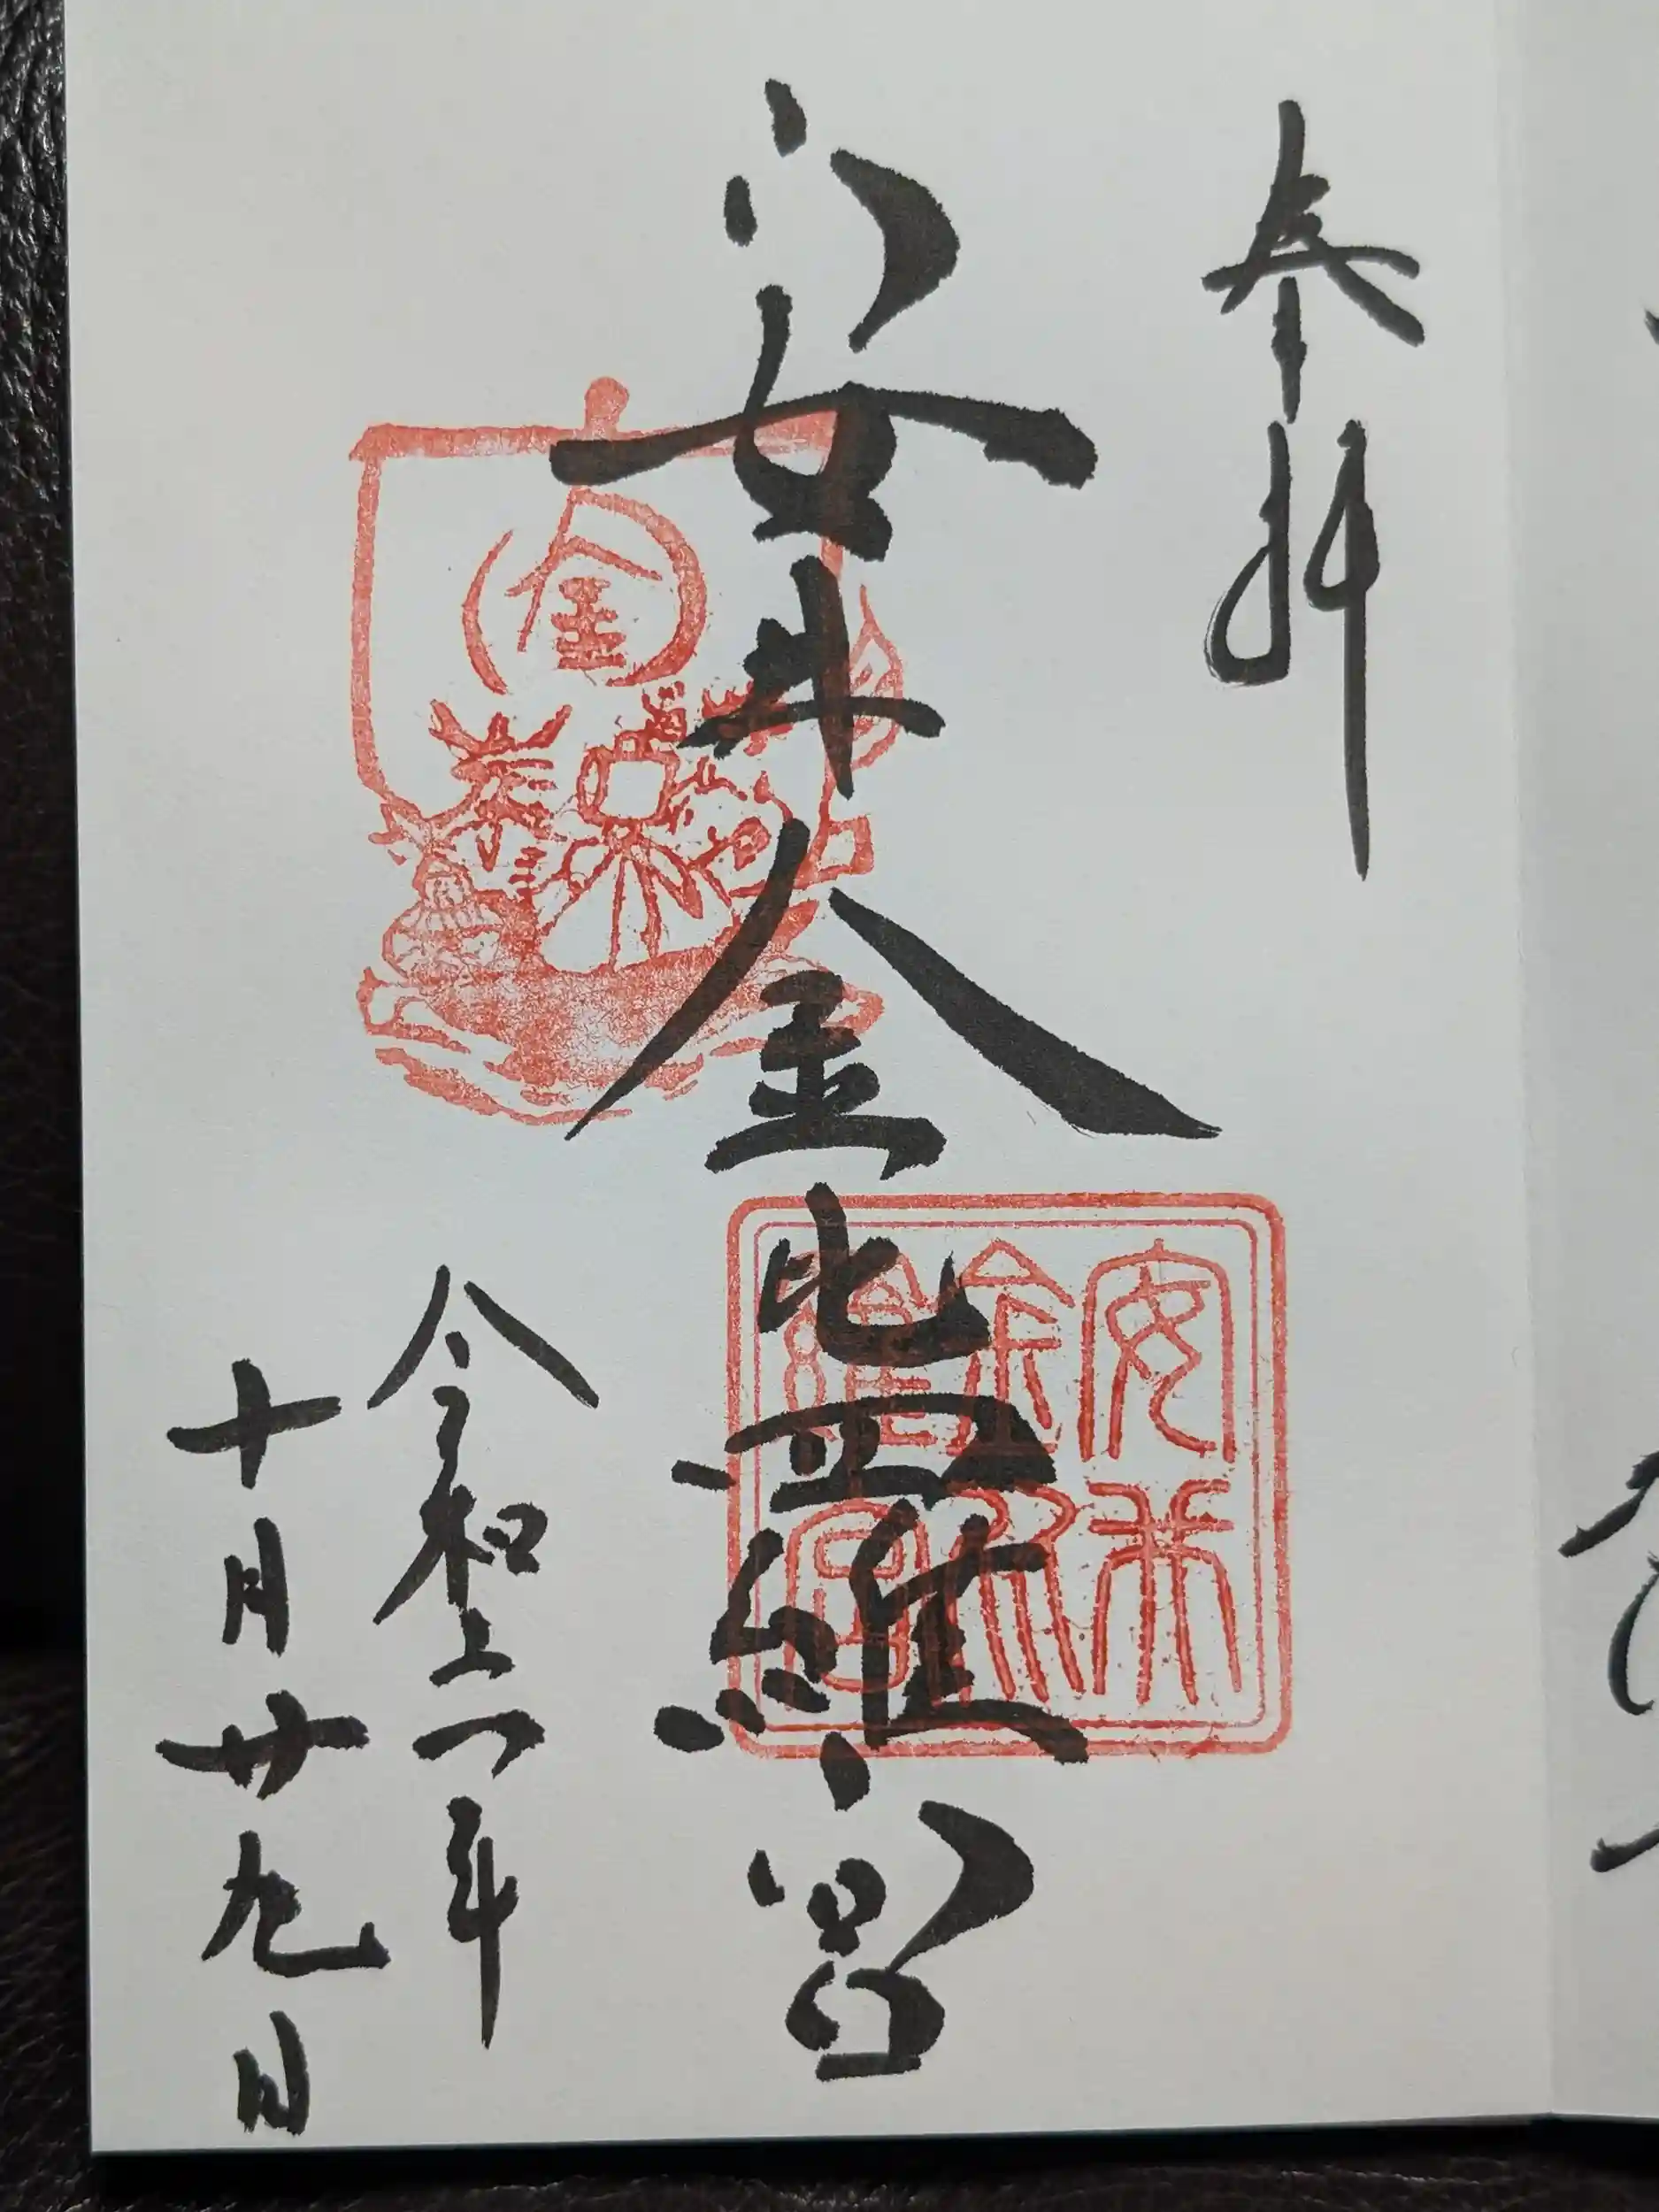 奉拝
安井金比羅宮
令和三年
十月廿九日
金
安井
金比
羅宮